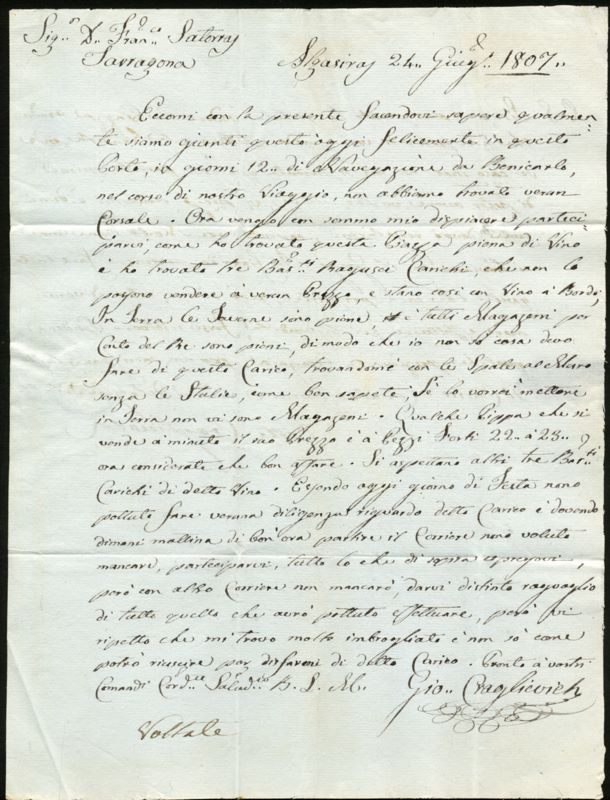 Sig.r D.n Fran.co Satorras
Tarragona
Algasiras 24.. Giug.o 1807..
Eccomi con la presente facendovi sapere qualmen-
te siamo giunti questo oggi felicemente in questo
Porto, in giorni 12.. di Navegazione da Benicarlo,
nel corso di nostro Viaggio, non abbiamo trovato verun
Corsale. Ora vengo con sommo mio dispiacere parteci-
parvi, come ho trovato questa Piazza piena di Vino
è ho trovato tre Bas.ti Ragusei Carichi, che non lo
possono vendere à verun Prezzo, e stano così con Vino à Bordo;
In Terra le Taverne sono piene, è tutti Magazeni per
Conto del Re sono pieni, di modo che io non so cosa devo
fare di questo Carico, trovandomi con le Spale al Muro
senza le Stalie, come ben sapete, Se lo vorrei mettere
in Terra non vi sono Magazeni. Qualche Pippa che si
vende à minuto il suo Prezzo è à Pezzi Forti 22.. à 23..,
ora considerate che bon affare. Si aspettano altri tre Bas.ti
Carichi di detto Vino. Essendo oggi giorno di Festa nano
pottuto fare veruna diligenza riguardo detto Carico è dovendo
dimani mattina di bon'ora partire il Corriere nono voluto
mancare, parteciparvi, tutto lo che di sopra
però con altro Corriere non mancarò, darvi distinto raguaglio
di tutto quello che avrò pottuto effettuare, però vi
ripetto che mi trovo molto imbrogliato è non sò come
potrò riuscire per disfarmi di detto Carico. Pronto à vostri
Comandi Cord.ce Salud.co B. L. M.
Gio.. Craglievich
Voltate